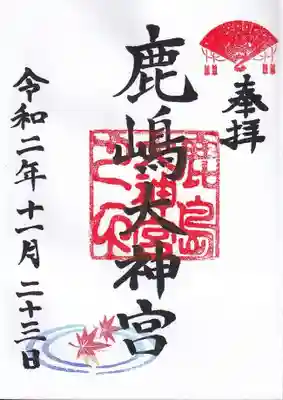 奉拝
鹿嶋大神宮
令和二年十一月二十三日
鹿島
神宮